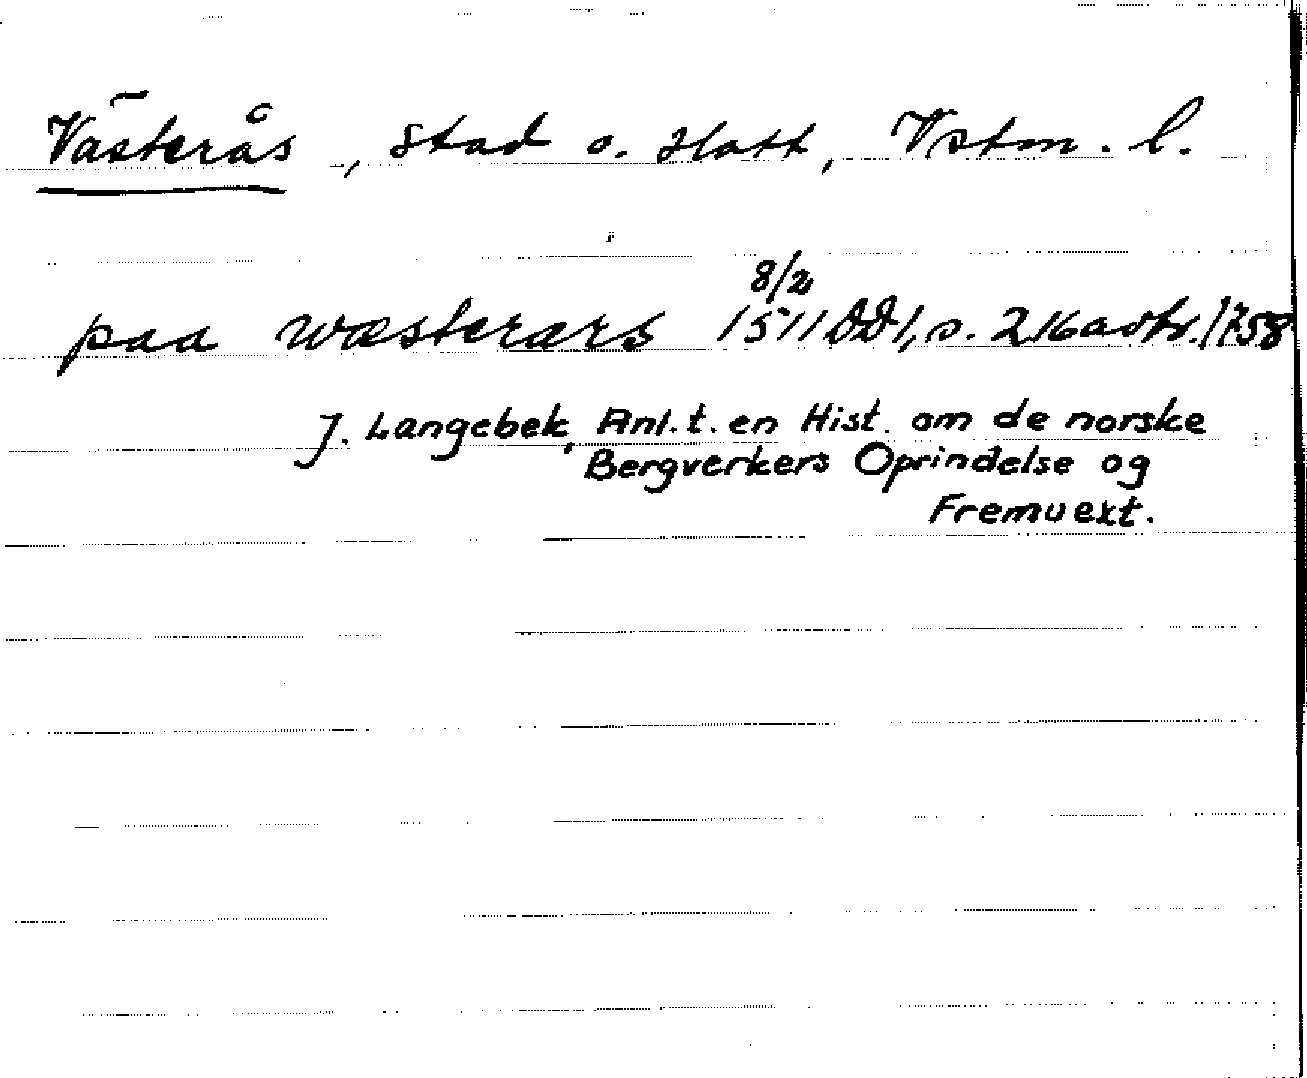 Västerås, stad o. slott, Vstm. l.
paa wæsterars 8/2 1511 DD1, s. 216 avtr. 1758
J. Langebek, Anl. t. en Hist. om de norske
Bergverkers Oprindelse og
Fremvext.